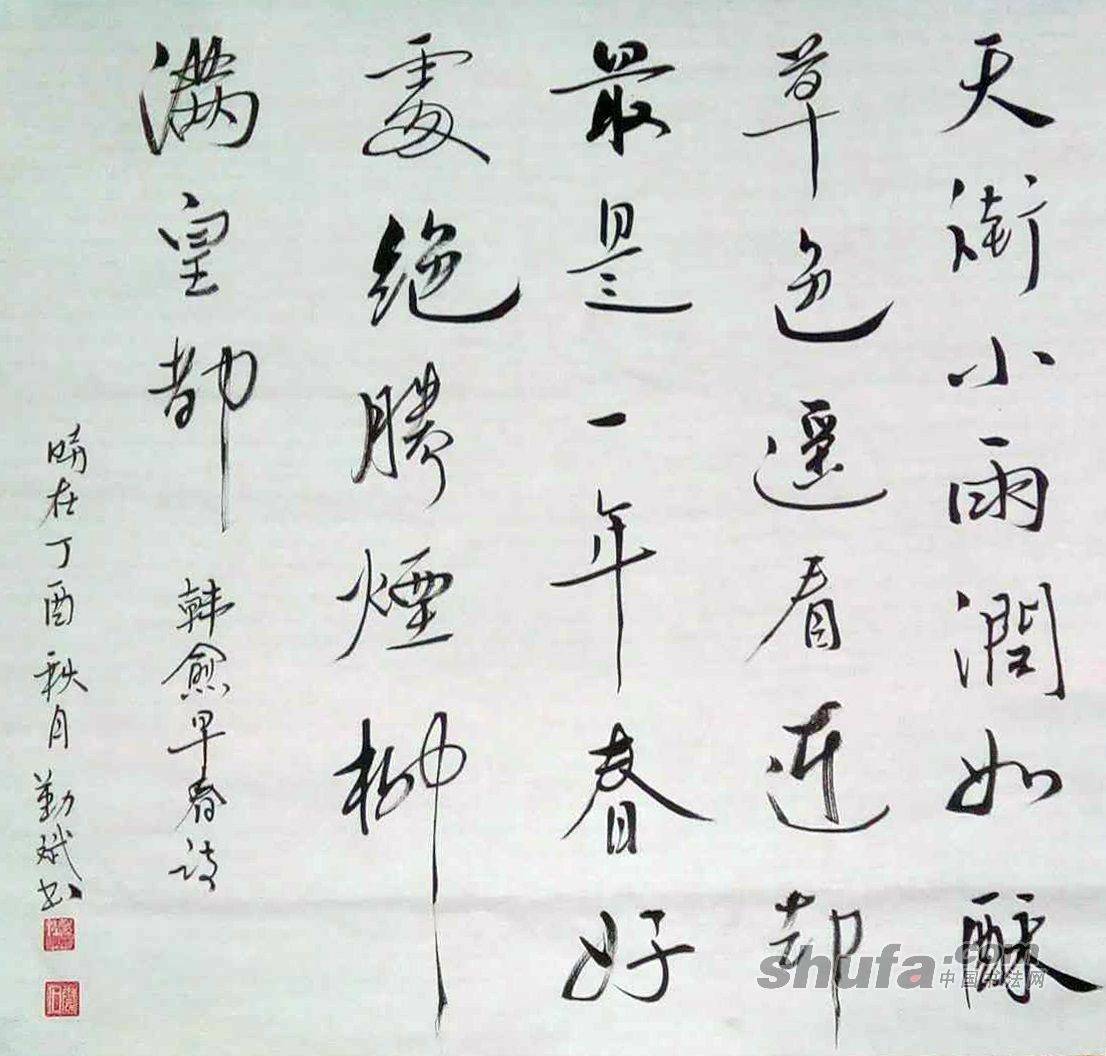 天街小雨潤如酥
草色遥看近却
最是一年春好
處絶勝煙柳
满皇都
韩愈早春诗
時在丁酉秋月勤斌书
shufa.com
中国书法网